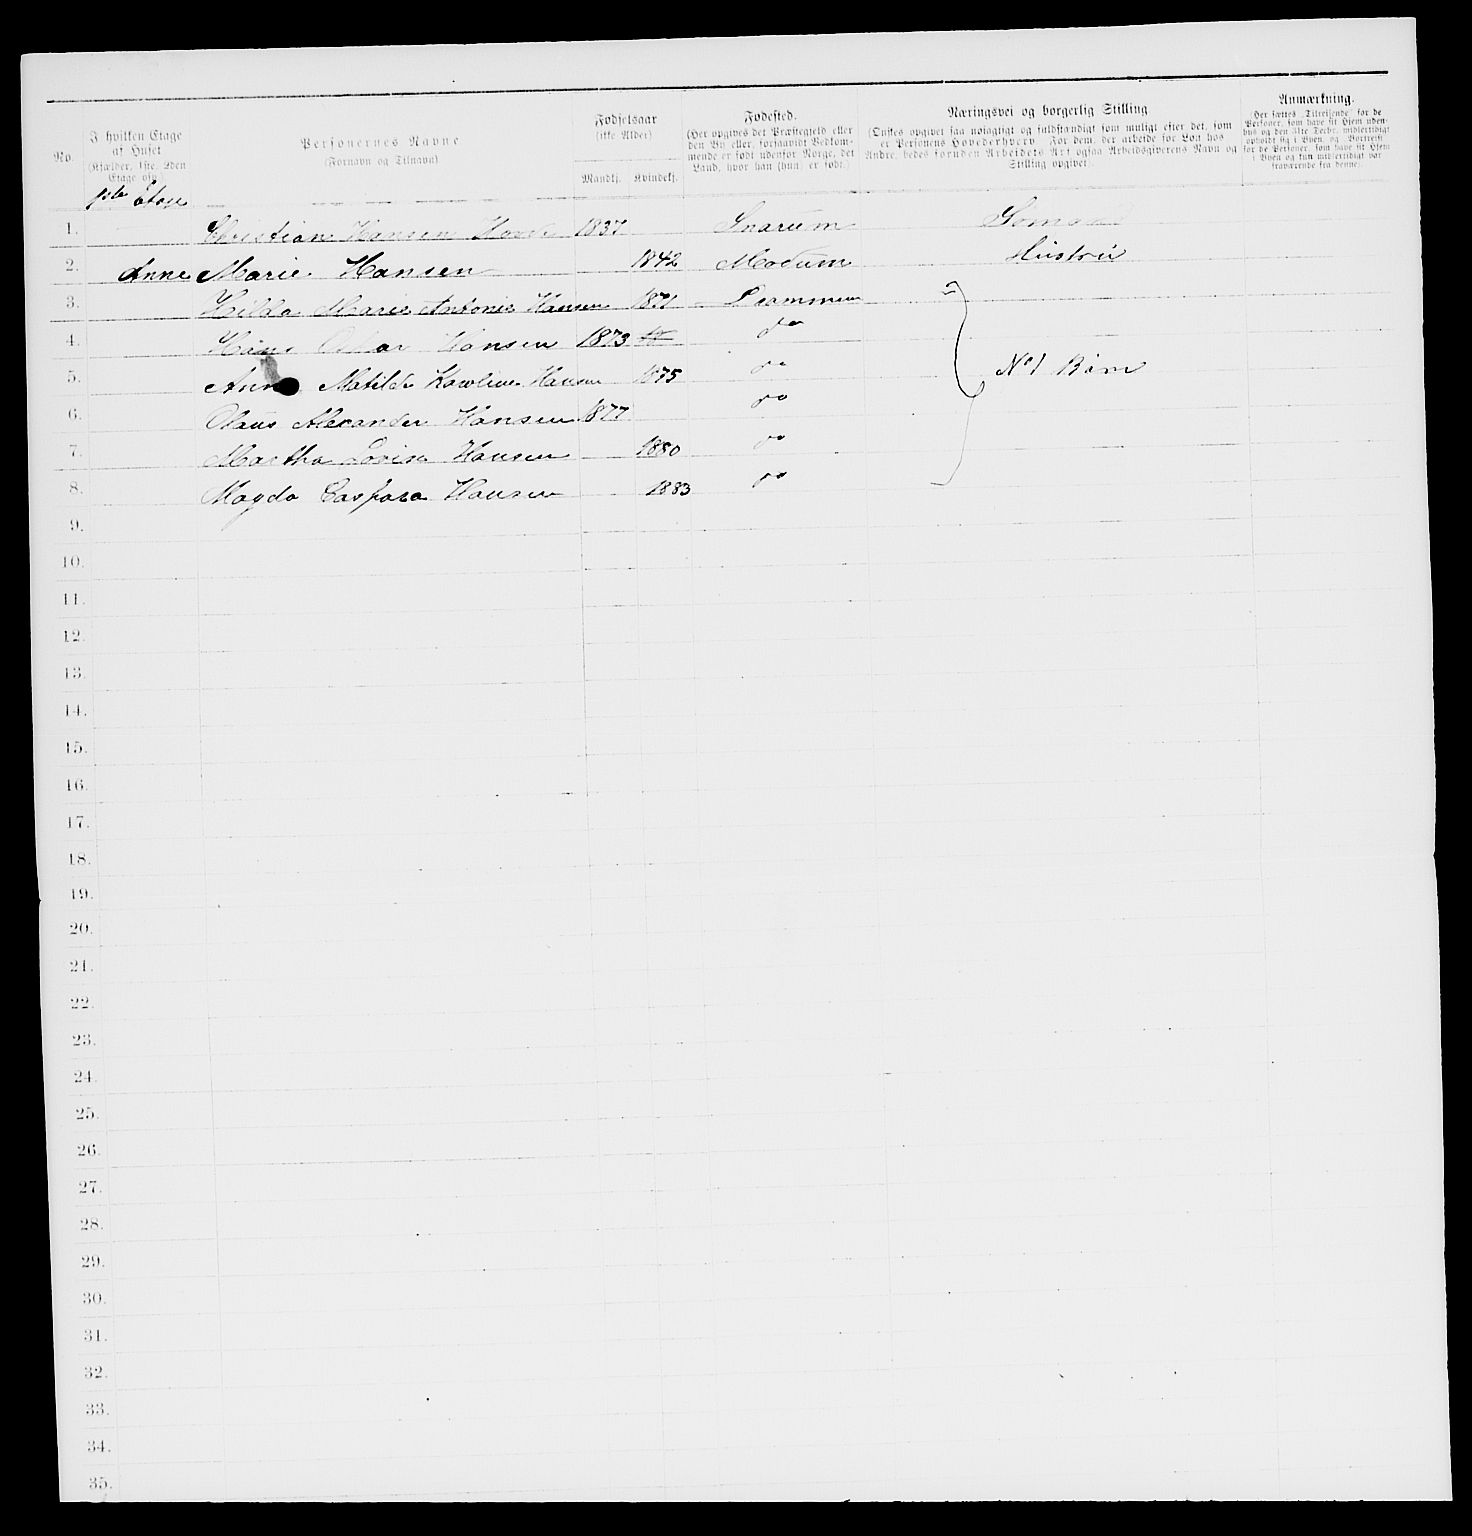 No.
I hvilken Etage af Huset (Kjælder, 1ste, 2den Etage osv.)
Personernes Navne (Fornavn og Tilnavn)
Fødselsaar (ikke Alder)
Mandkj. Kvindekj.
Fødested.
(Her opgives det Præstegjeld eller den By eller, forsaavidt Vedkommende er født udenfor Norge, det Land, hvor han (hun) er født.)
Næringsvei og borgerlig Stilling
(Ønskes opgivet saa nøiagtigt og fuldstændigt som muligt efter det, som er Personens Hovederhverv. For dem, der arbeide for Løn hos Andre, bedes foruden Arbeidets Art ogsaa Arbeidsgiverens Navn og Stilling opgivet.)
Anmærkning.
(Her sættes "Tilreisende" for de Personer, som have sit Hjem udenbys og den 31te Decbr. midlertidigt opholdt sig i Byen, og "Bortreist" for de Personer, som have sit Hjem i Byen og kun midlertidigt var fraværende fra denne.)
1ste Etage
1. Christian Hansen 1837 Snarum
2. Anne Marie Hansen 1842 Modum Hustru
3. Hilda Marie Antonie Hansen 1871 Drammen
4. Hans Oskar Hansen 1873 do
5. Anna Matilde Karoline Hansen 1875 do No 1 Børn
6. Olaus Alexander Hansen 1877 do
7. Martha Lovise Hansen 1880 do
8. Magda Caspara Hansen 1883 do
9.
10.
11.
12.
13.
14.
15.
16.
17.
18.
19.
20.
21.
22.
23.
24.
25.
26.
27.
28.
29.
30.
31.
32.
33.
34.
35.